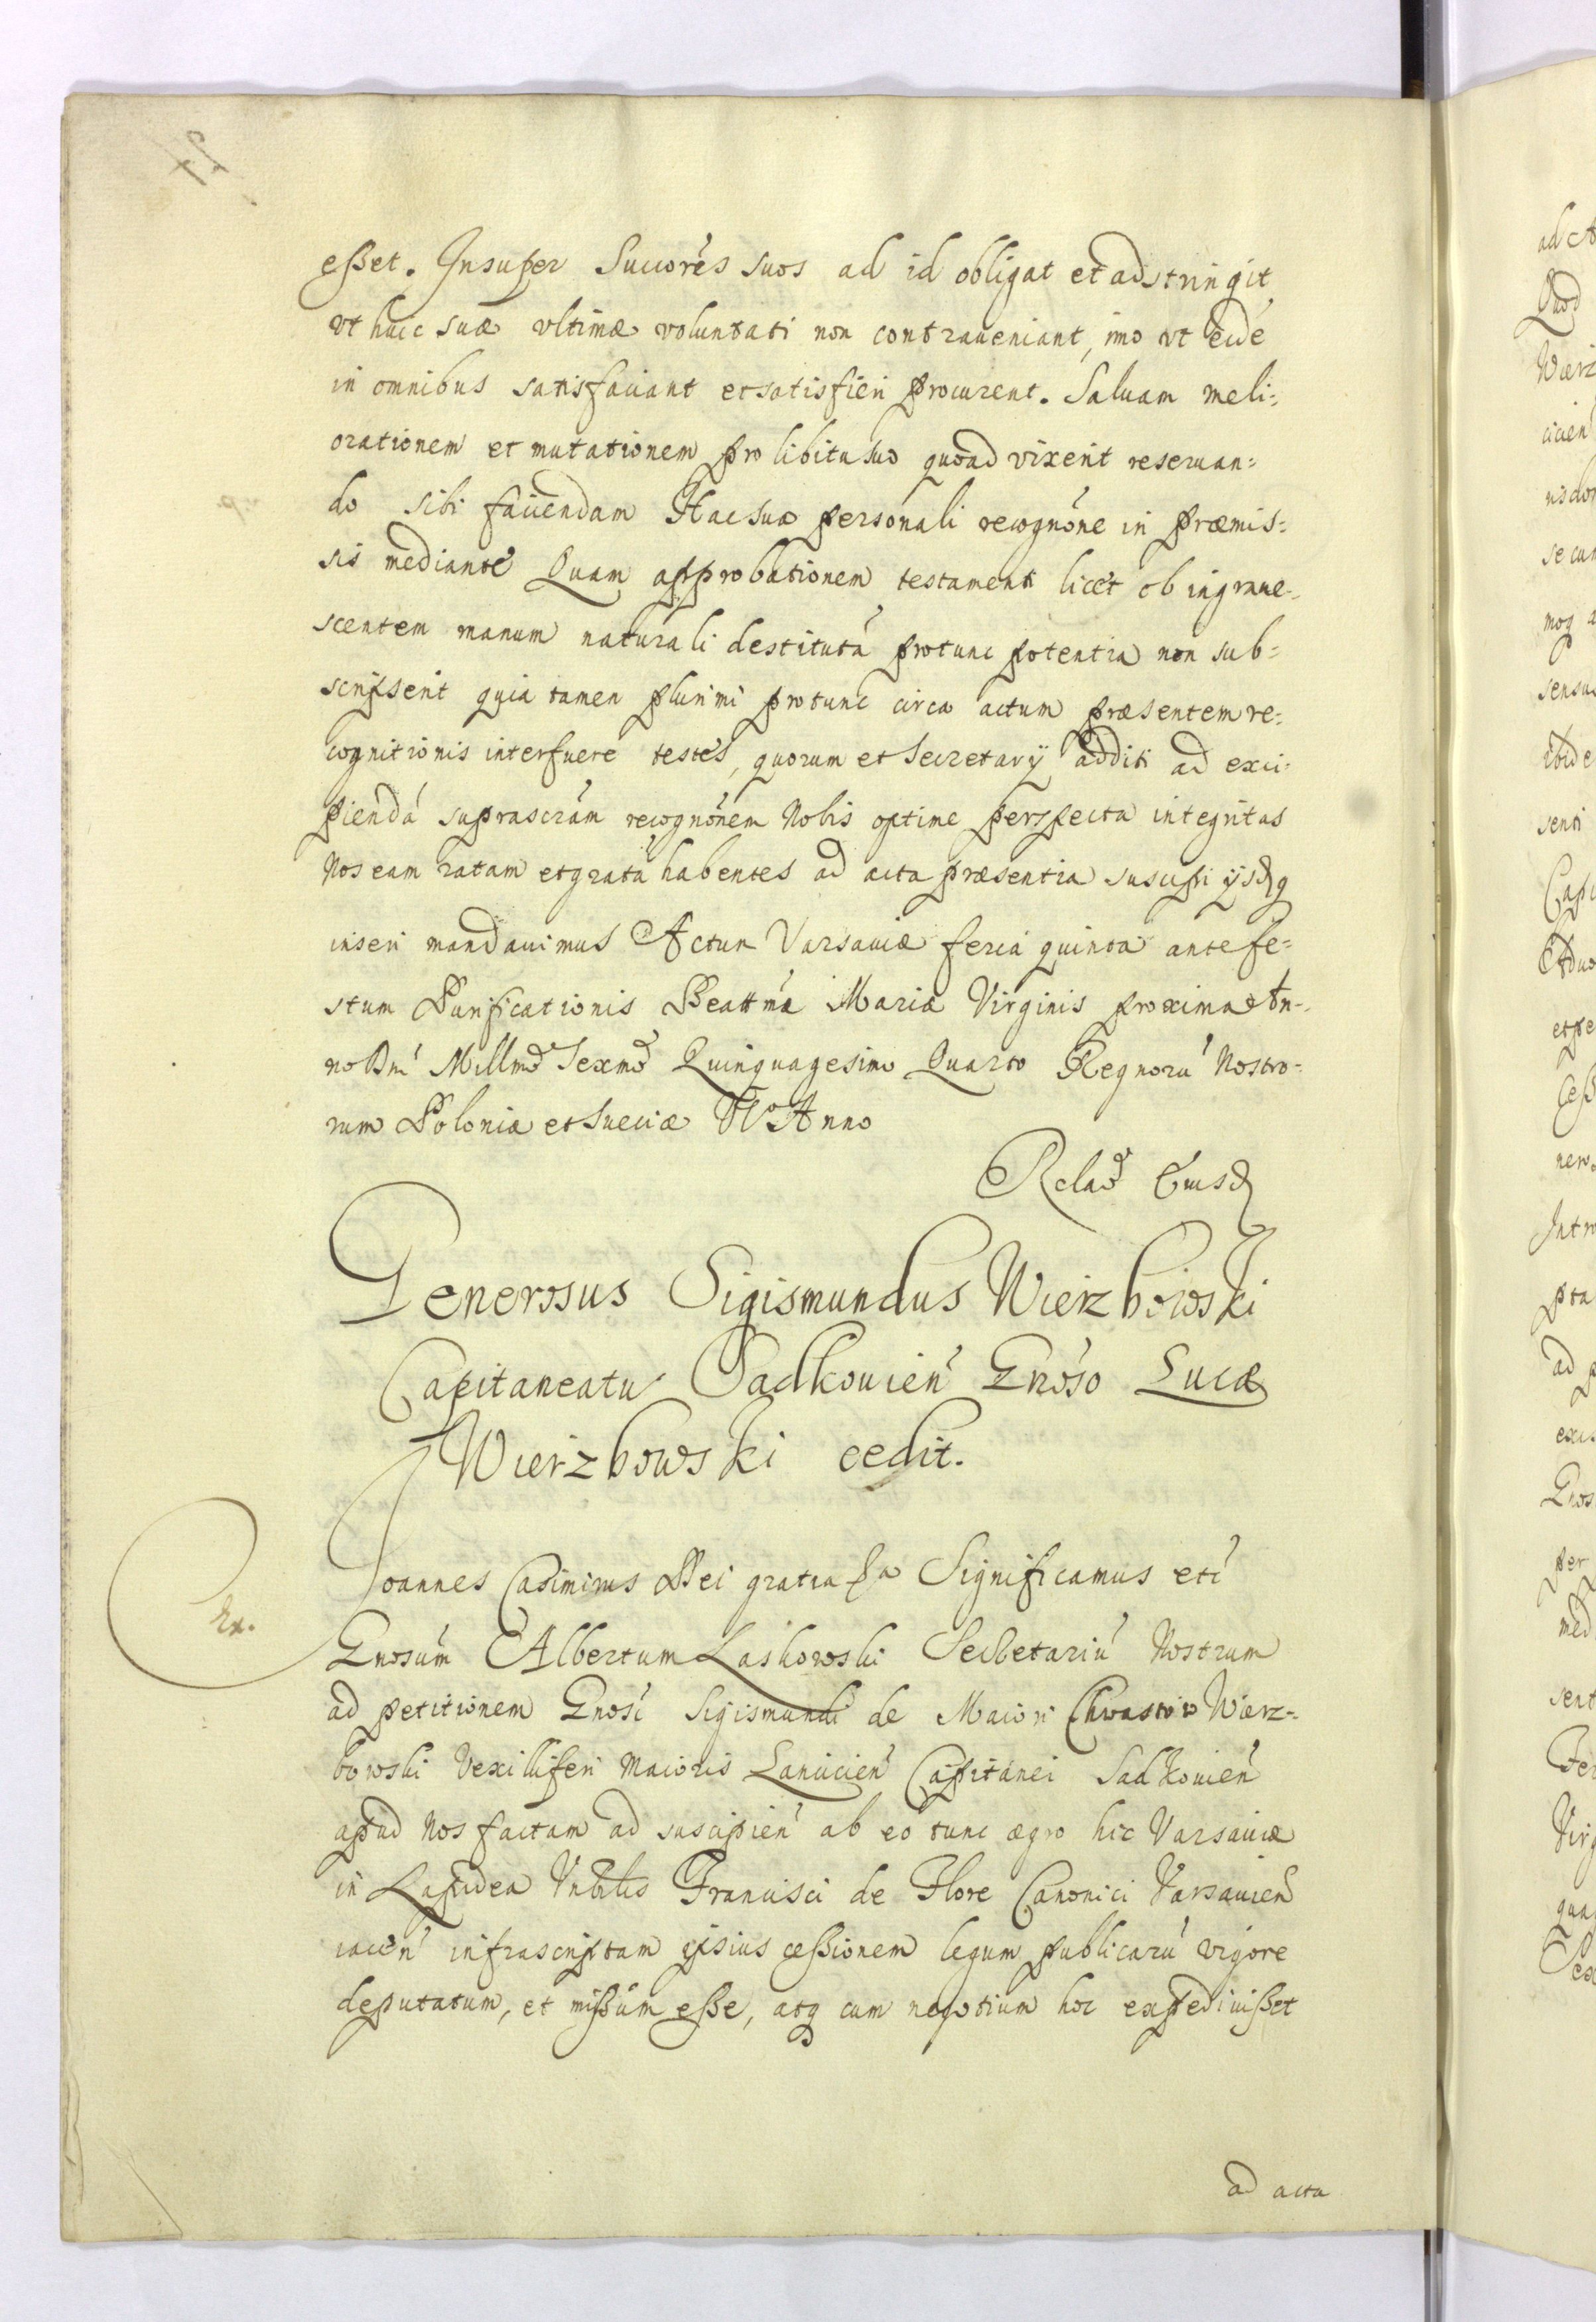 esset. Insuper Succores suos ad id obligat et adstringit
vt huic suæ vltimæ voluntati non contraueniant, imo vt eidē
in omnibus satisfaciant et satisfieri procurent. Saluam meli=
orationem et mutationem pro libitu suo quoad vixerit reseruan=
do sibi faciendam Hac sua personali recognōne in præmis=
sis mediante Quam approbationem testamenti licet ob ingraue=
scentem manum naturali destitutā protunc potentia non sub=
scripserit quia tamen plurimi protunc circa actum præsentem re=
cognitionis interfuere testes, quorum et Secretarÿ additi ad exci=
piendā suprascrām recognōnem Nobis optime perspecta integritas
Nos eam ratam et gratā habentes ad acta præsentia suscipi ijsdq
inseri mandauimus Actum Varsauiæ feria quinta ante fe=
stum Purificationis Beattmæ Mariæ Virginis proxima An=
no Dni Millmo Sexmo Quinquagesimo Quarto Regnorū Nostro=
rum Poloniæ et Sueciæ VI Anno
Relao Eiusd
Generosus Sigismundus Wierzbowski
Capitaneatu Sadkouien Gnoso Lucæ
Wierzbowski cedit.
Joannes Casimirus Dei gratia Significamus etc
Rx.
Gnosum Albertum Laskowski Secretariū Nostrum
ad petitionem Gnosi Sigismundi de Maiori Chwastow Wierz=
bowski Vexilliferi Maioris Lanicien Capitanei Sadkouien
apud Nos factam ad suscipien ab eo tunc ægro hic Varsauiæ
in Lapidea Vnblis Francisci de Flore Canonici Varsauien
iacen infrascriptam ipsius cessionem legum publicarū vigore
deputatum, et missum esse, atq cum negotium hoc expediuisset
ad acta